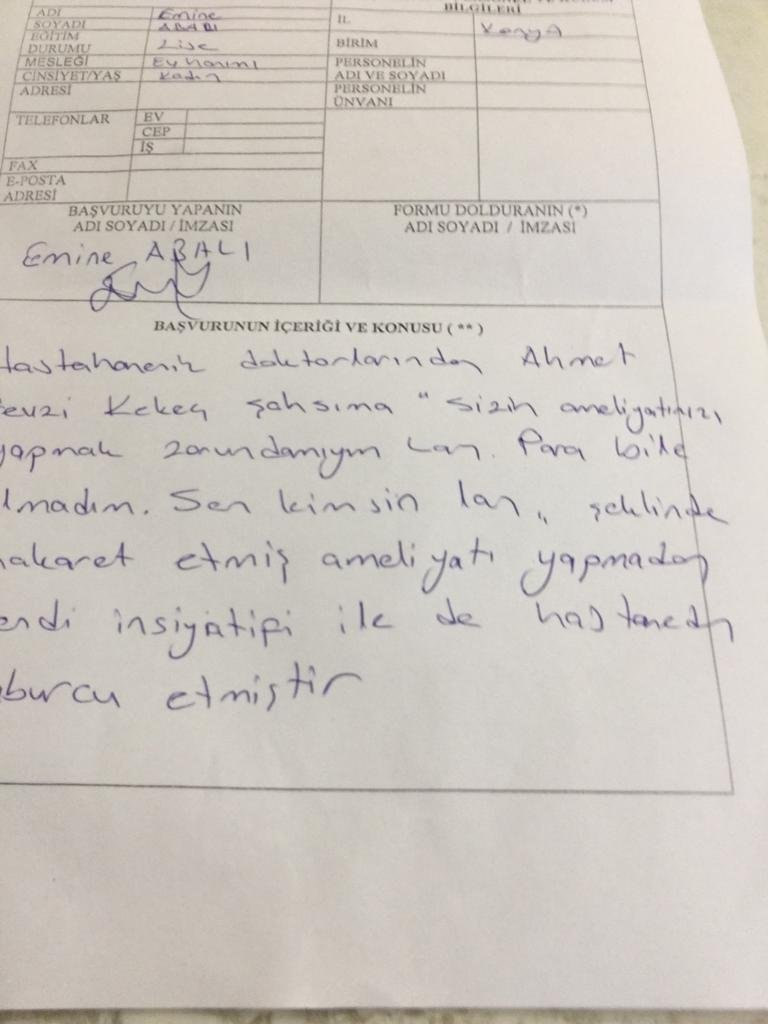 BİLGİLERİ
ADI Emine İL Konya
SOYADI ABALI
EĞİTİM DURUMU Lise BİRİM
MESLEĞİ Ev hanımı PERSONELİN ADI VE SOYADI
CİNSİYET/YAŞ Kadın
ADRESİ PERSONELİN ÜNVANI
TELEFONLAR EV
CEP
İŞ
FAX
E-POSTA ADRESİ
BAŞVURUYU YAPANIN FORMU DOLDURANIN (*)
ADI SOYADI / İMZASI ADI SOYADI / İMZASI
Emine ABALI
BAŞVURUNUN İÇERİĞİ VE KONUSU ( ** )
doktorlarından Ahmet
evzi Kekeç şahsıma " sizin ameliyatınızı
yapmak zorundamıyım Lan. Para bile
lmadım. Sen kimsin lan " şeklinde
akaret etmiş ameliyatı yapmadan
endi insiyatifi ile de hastaneden
burcu etmiştir